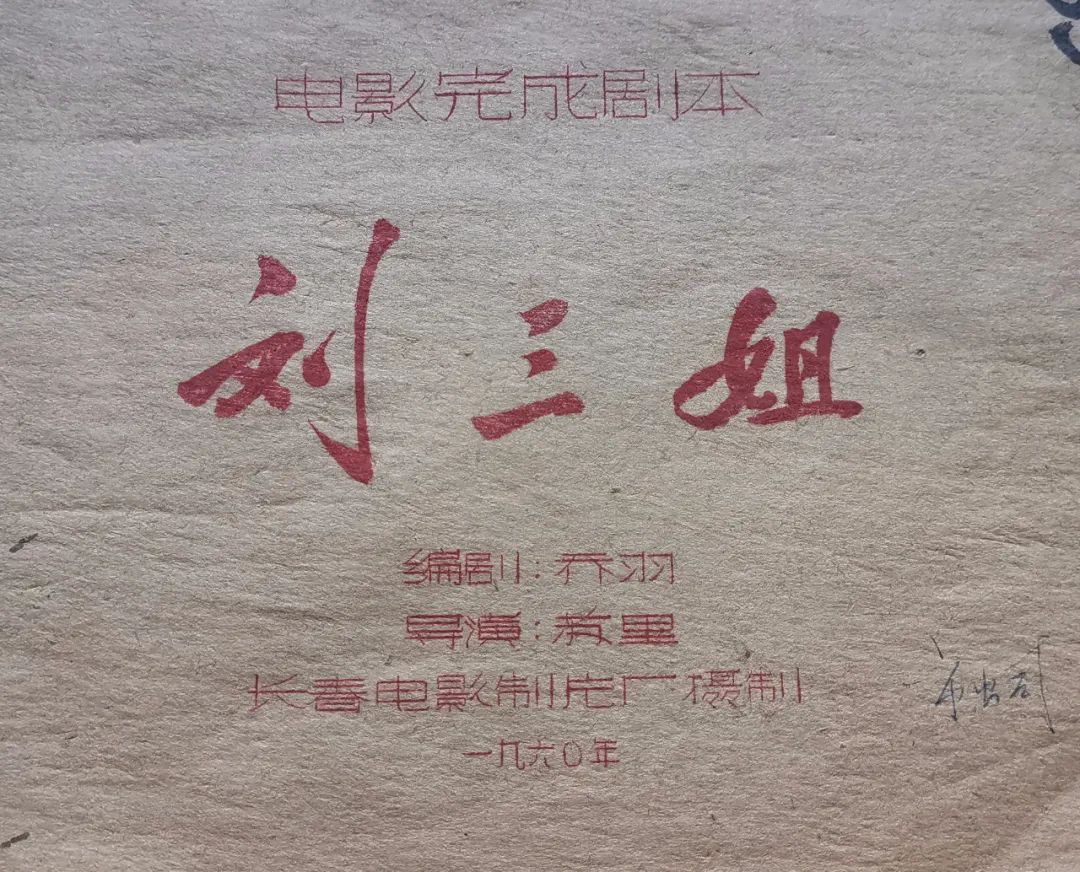 电影完成剧本
刘三姐
编剧：乔羽
导演：苏里
长春电影制片厂摄制
一九六〇年